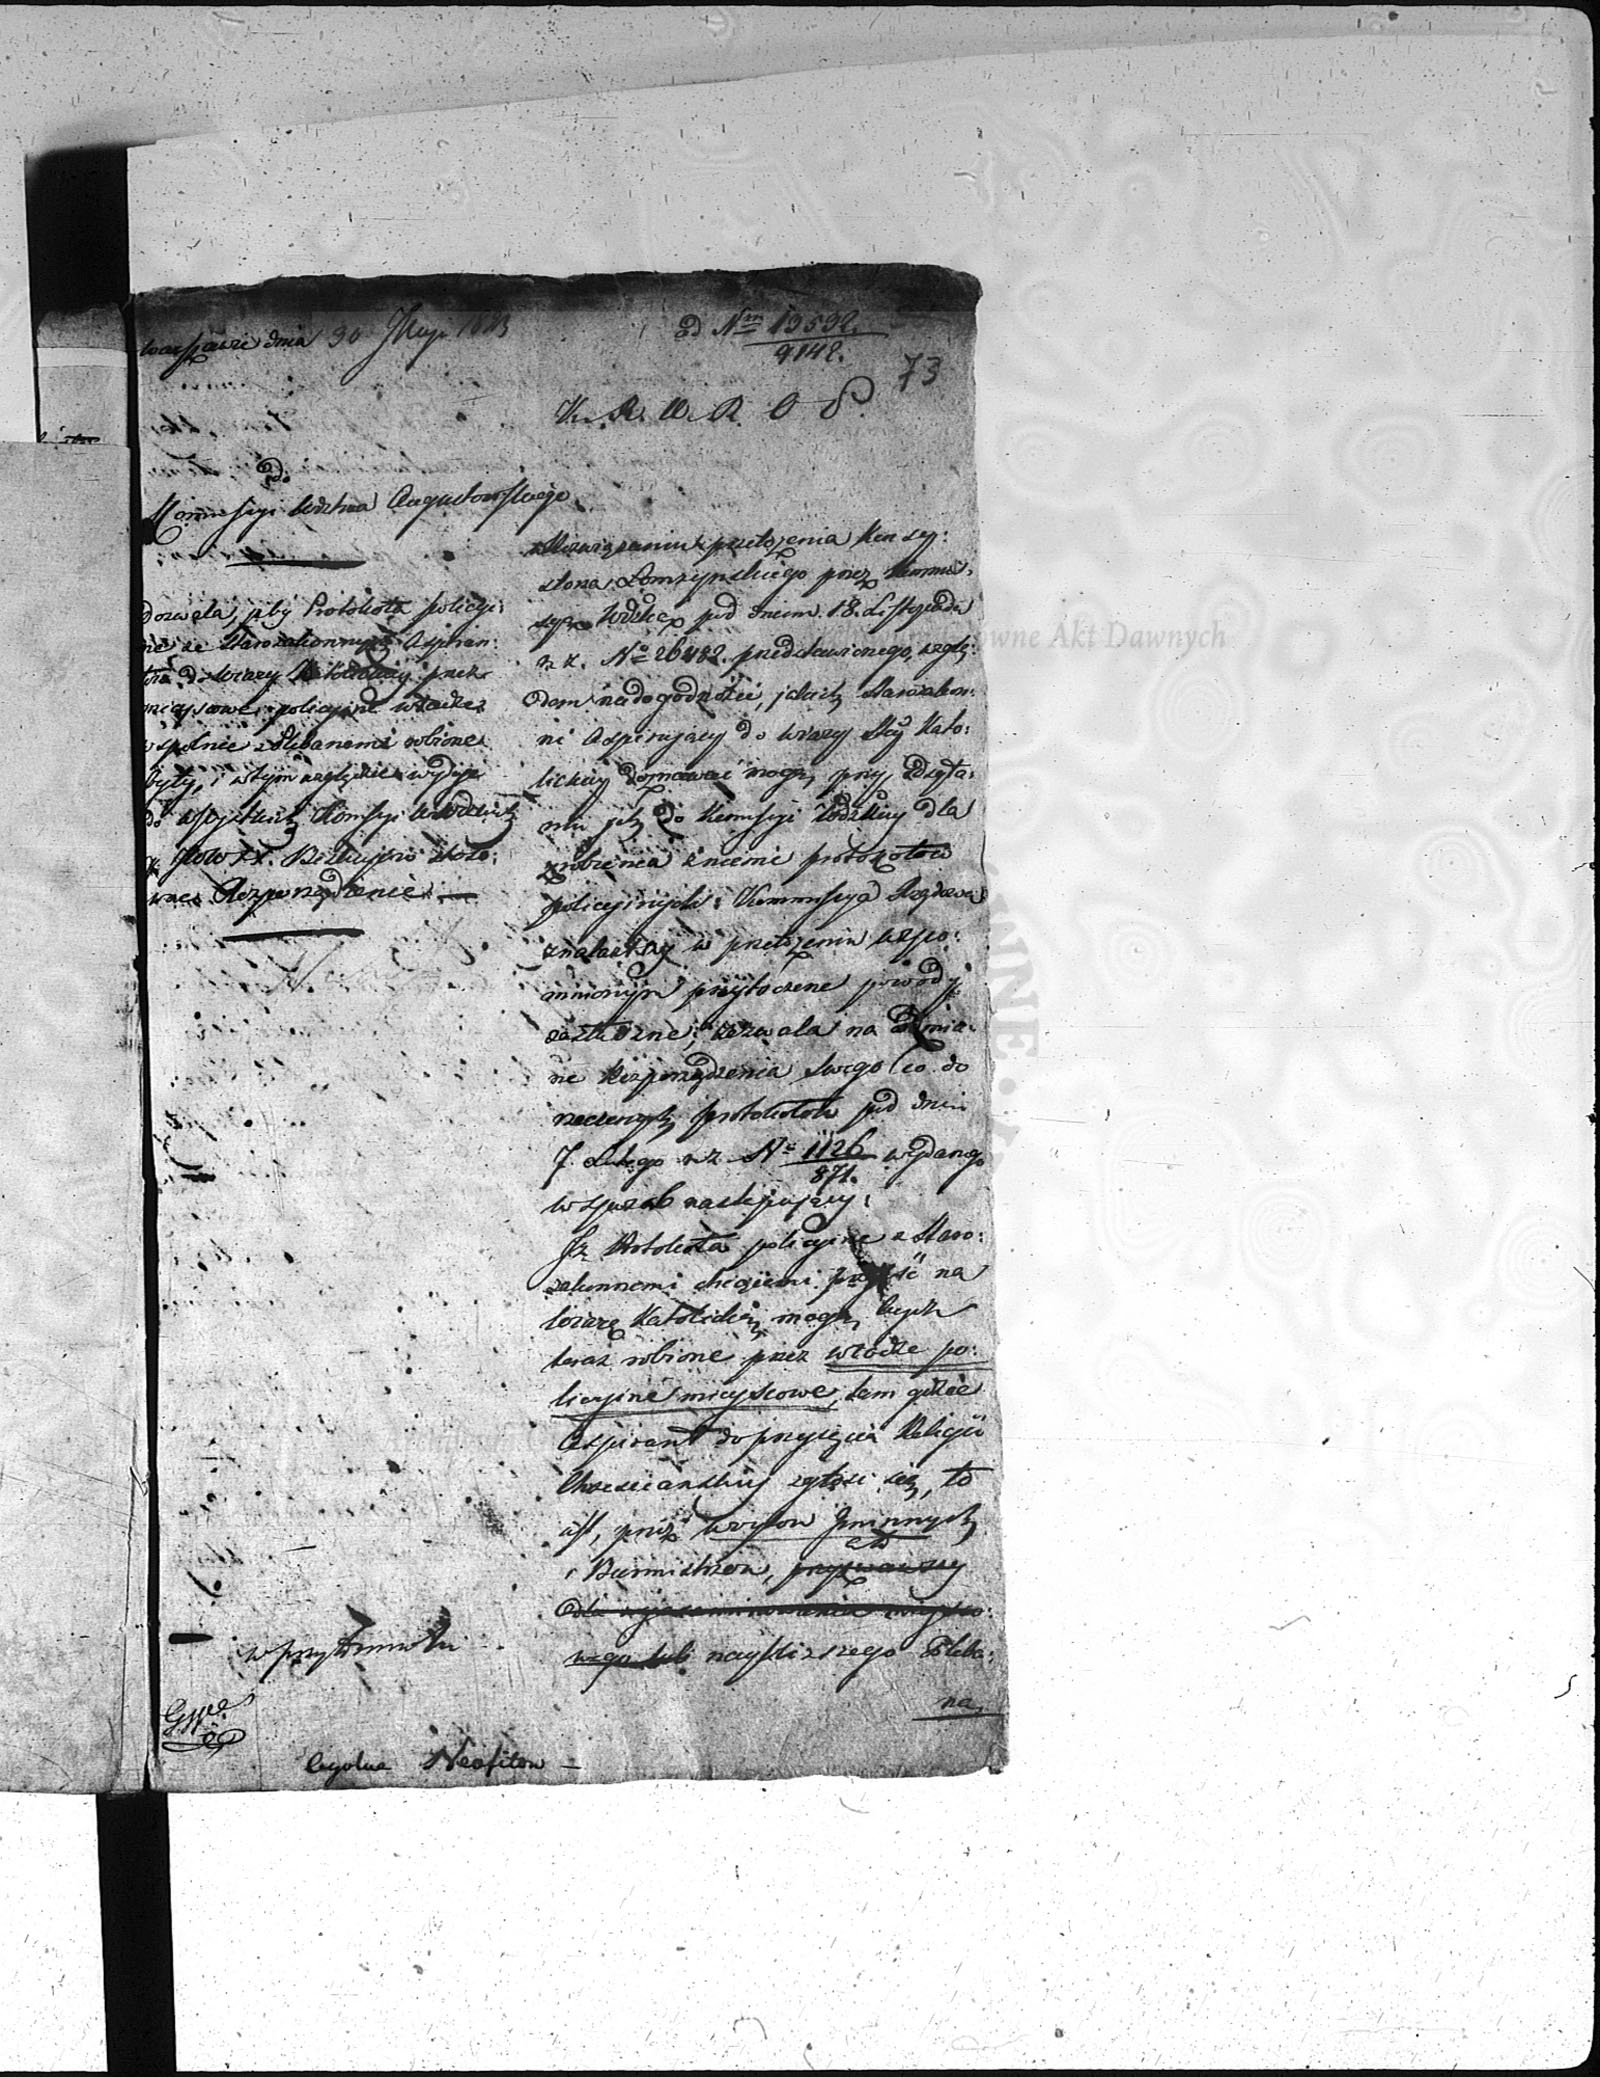 Warszawie dnia 30 Maja 1823
ad Nrm 13592.
9142.
73
K. R. W. R. O. P.
Do
Kommissyi Wdztwa Augustowskiego
dozwala, aby Protokóła policyi:
ne ze Starozakonnymi Aspiran:
do wiary Katolickiey przez
mieyscowe policyine władze
wspólnie z Plebanami robione
były, i w tym względzie wydaje
do wszystkich Komissyi Wdzkich
Rozporządzenie. —
w rozwiązaniu przełożenia Kon sy:
storza Łomżyńskiego przez Kommis:
syą Wdzką pod dniem 18. Listopada
r. z. No 26482. przedstawionego, wzglę:
dem niedogodności, jakich starozakon:
ni Aspirujący do wiary Stey Kato:
lickiey doznawać mogą, przy odsyła:
niu ich do Komissyi Wdzkiey dla
zrobienia z niemi protokołów
policyinych; Kommissya Rządowa
znalazłszy w przełożeniu wspo:
mnionym przytoczone powody
za słuszne; zezwala na zmia:
nę Rozporządzenia swego co do
rzeczonych protokołów pod dniem
7. Lutego r. z. No 1126 wydanego
871.
w sposób następujący:
Iż Protokóła policyine z Staro:
zakonnemi chcącemi przeyść na
wiarę Katolicką, mogą bydź
teraz robione przez władze po:
licyine mieyscowe, tam gdzie
Aspirant do przyięcia Religii
Chrześciańskiey zgłosi się, to
iest, przez Wóytów Gminnych
i Burmistrzów, przyzwawszy
dla wyexaminowania mieysco:
wego lub naybliższego Pleba:
na
w przytomności
Neofitów —